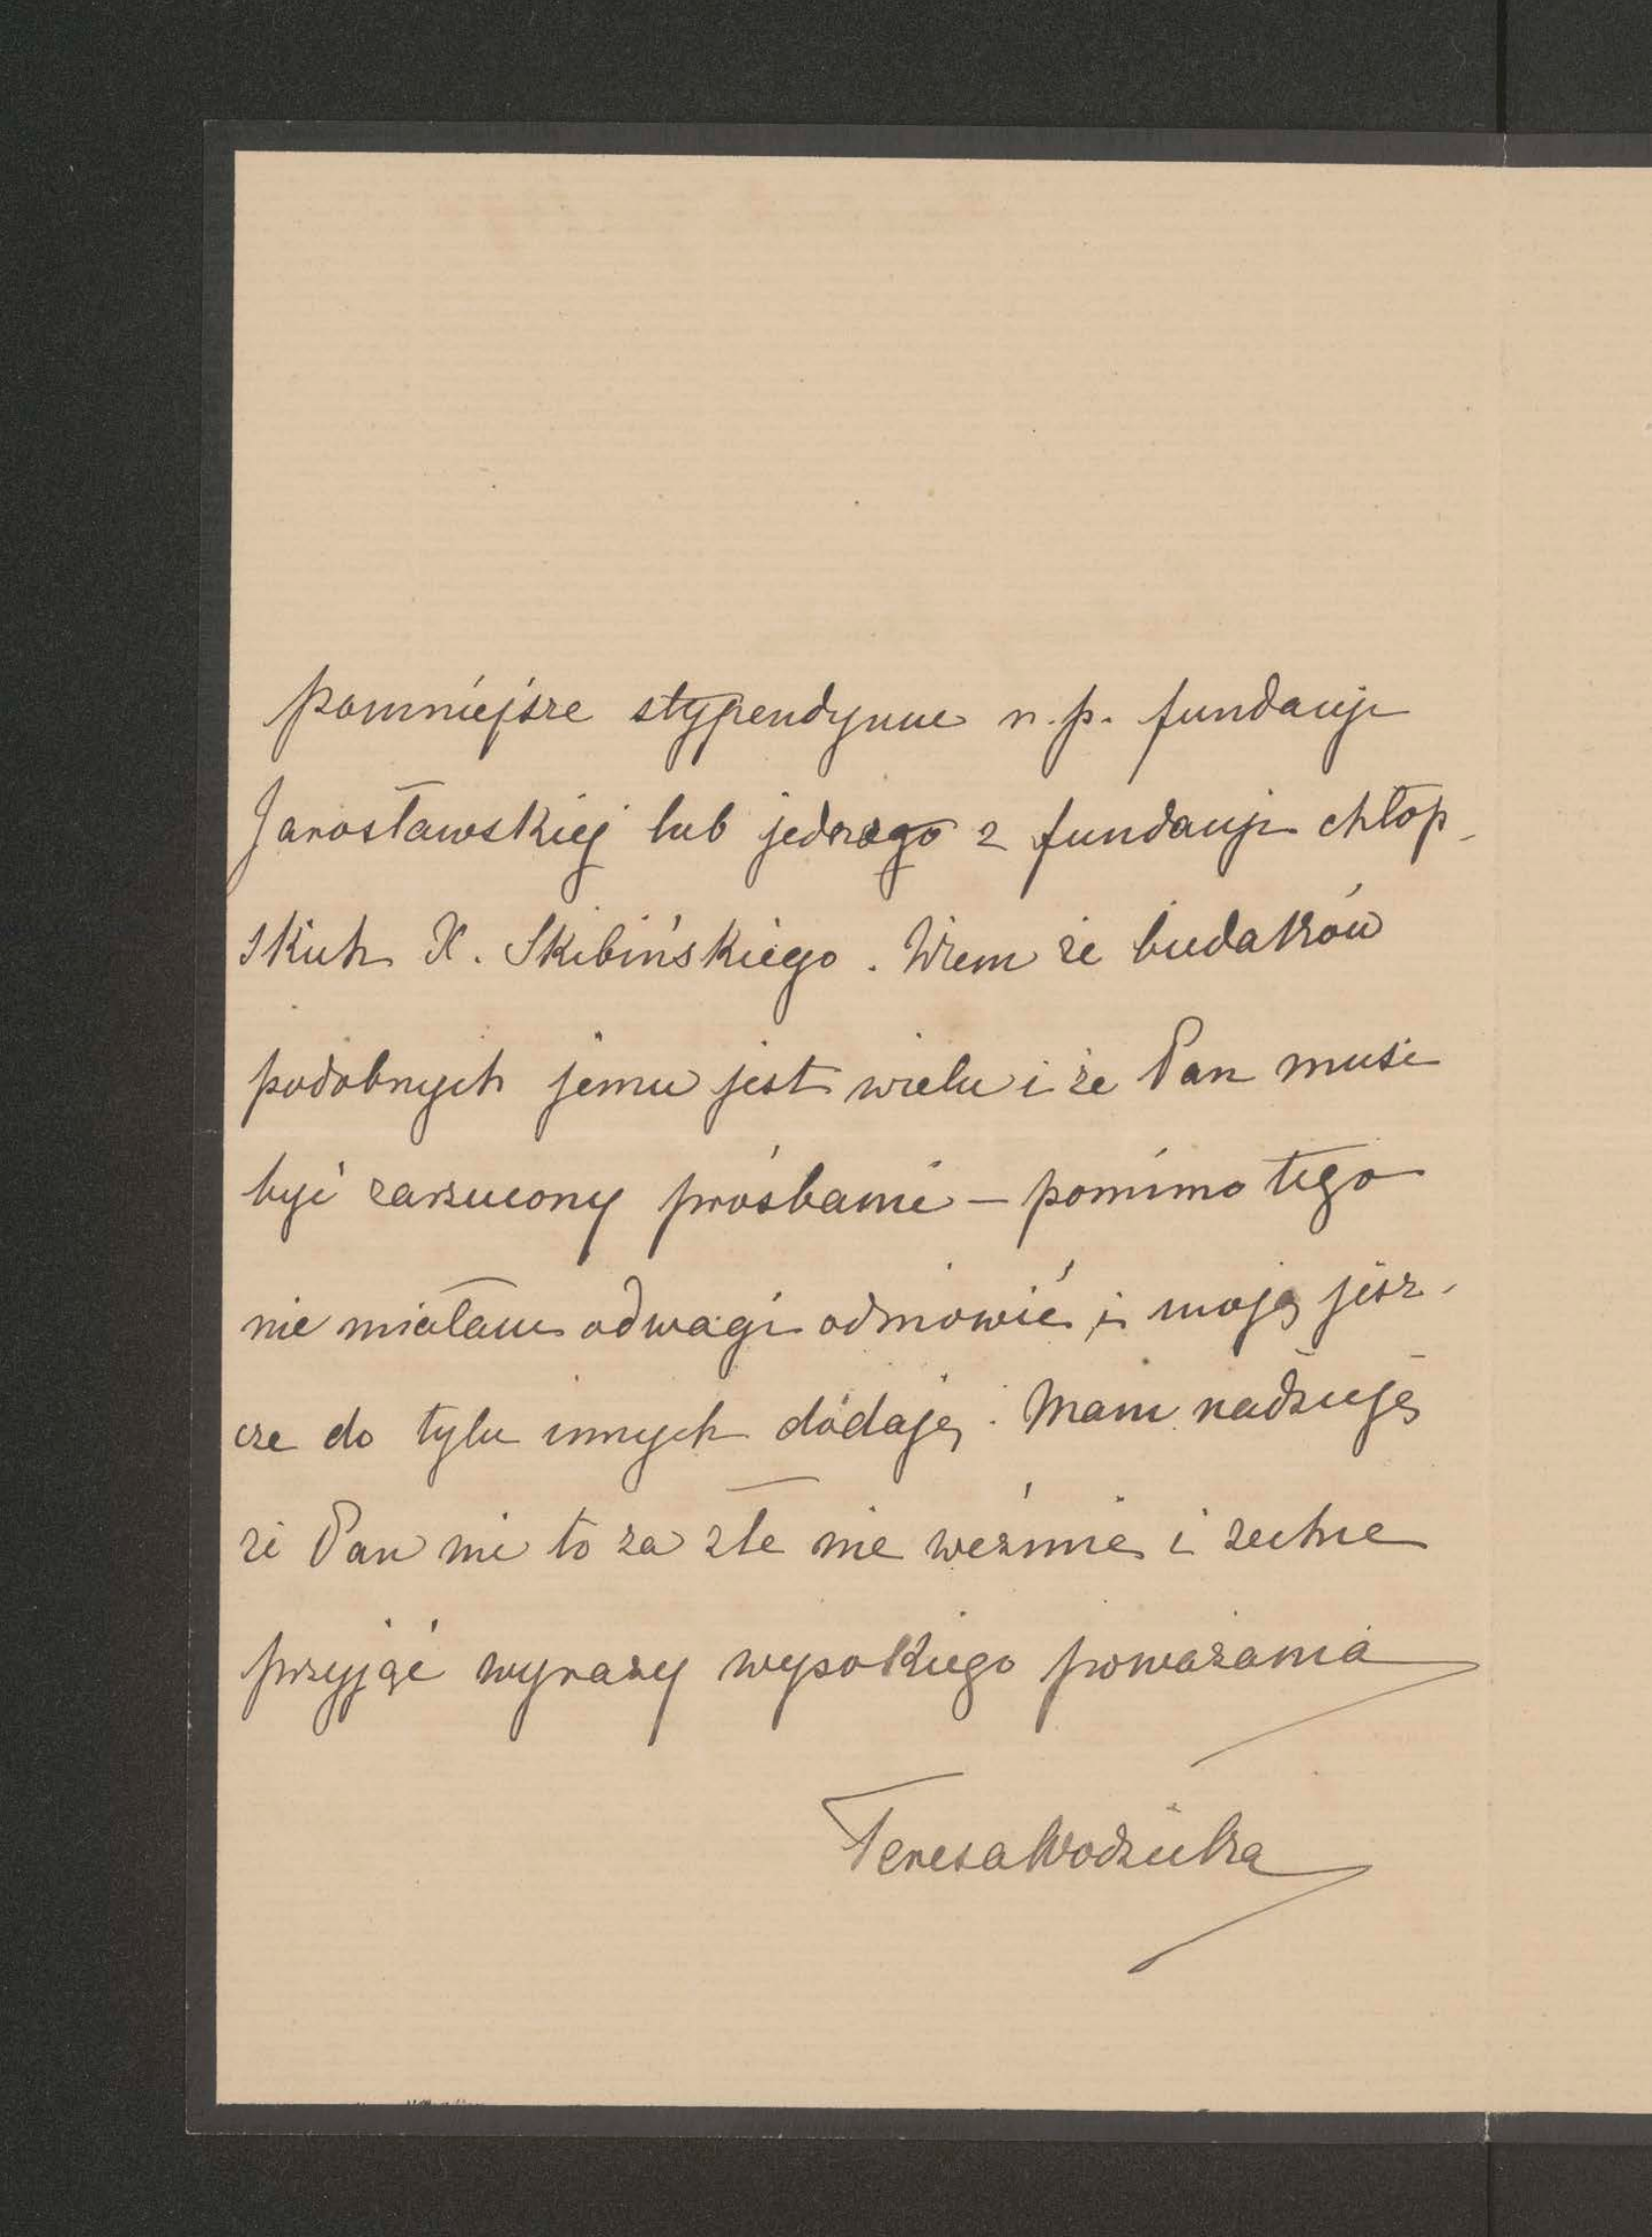 pomniejsze stypendyum n.p. fundacyi
Jarosławskiej lub jednego z fundacyi chłop-
skich X. Skibińskiego. Wiem że biedaków
podobnych jemu jest wielu i że Pan musi
być zarzucony prośbami – pomimo tego
nie miałam odwagi odmówić i moją jesz-
cze do tylu innych dodaję. Mam nadzieję
że Pan mi to za złe nie weźmie i zechce
przyjąć wyrazy wysokiego poważania
Teresa Wodzicka